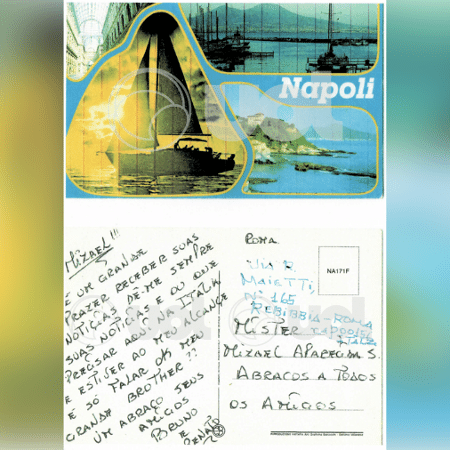 Napoli
MIZAEL!!!
É UM GRANDE
PRAZER RECEBER SUAS
NOTIÇAS DE-ME SEMPRE
SUAS NOTIÇAS E OU QUE
PRECISAR AQUI NA ITALIA
E ESTIVER AO MEU ALCANCE
E SÓ FALAR OK MEU
GRANDE BROTHER ??
UM ABRAÇO SEUS
AMIGOS
BRUNO
E
RENATO
ROMA
NA171F
VIA R
MAIETTI,
Nº 165
REBIBBIA-ROMA
ITALIA
MISTER
MIZAEL APARECIDA S.
ABRAÇOS A TODOS
OS AMIGOS